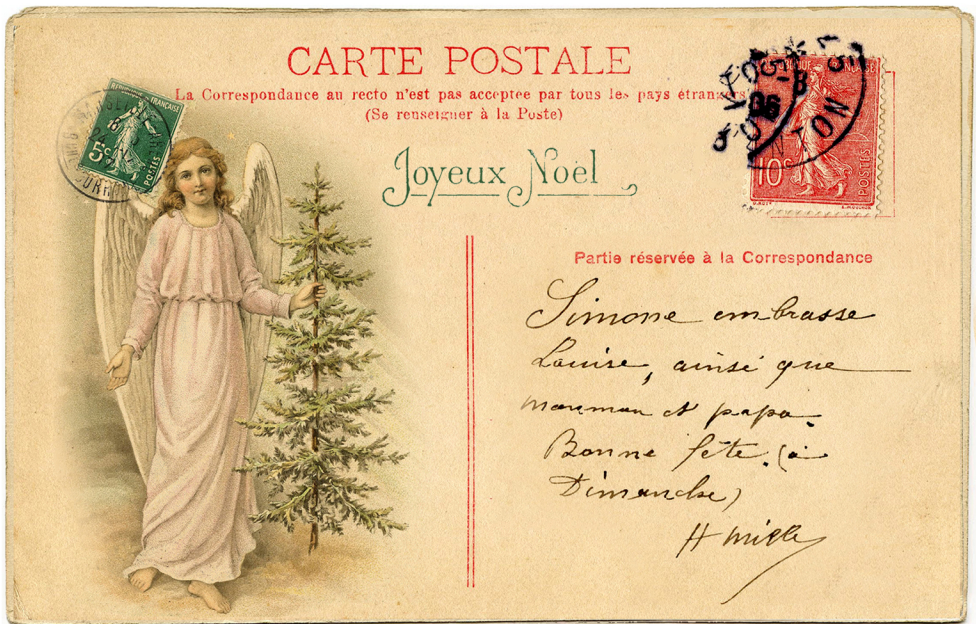 CARTE POSTALE
La Correspondance au recto n'est pas acceptée par tous les pays étrangers
(Se renseigner à la Poste)
Joyeux Noël
REPUBLIQUE FRANÇAISE
5c
POSTES
10c
POSTES
06
Partie réservée à la Correspondance
Simone embrasse
Louise, ainsi que
maman et papa.
Bonne fête. (à
Dimanche)